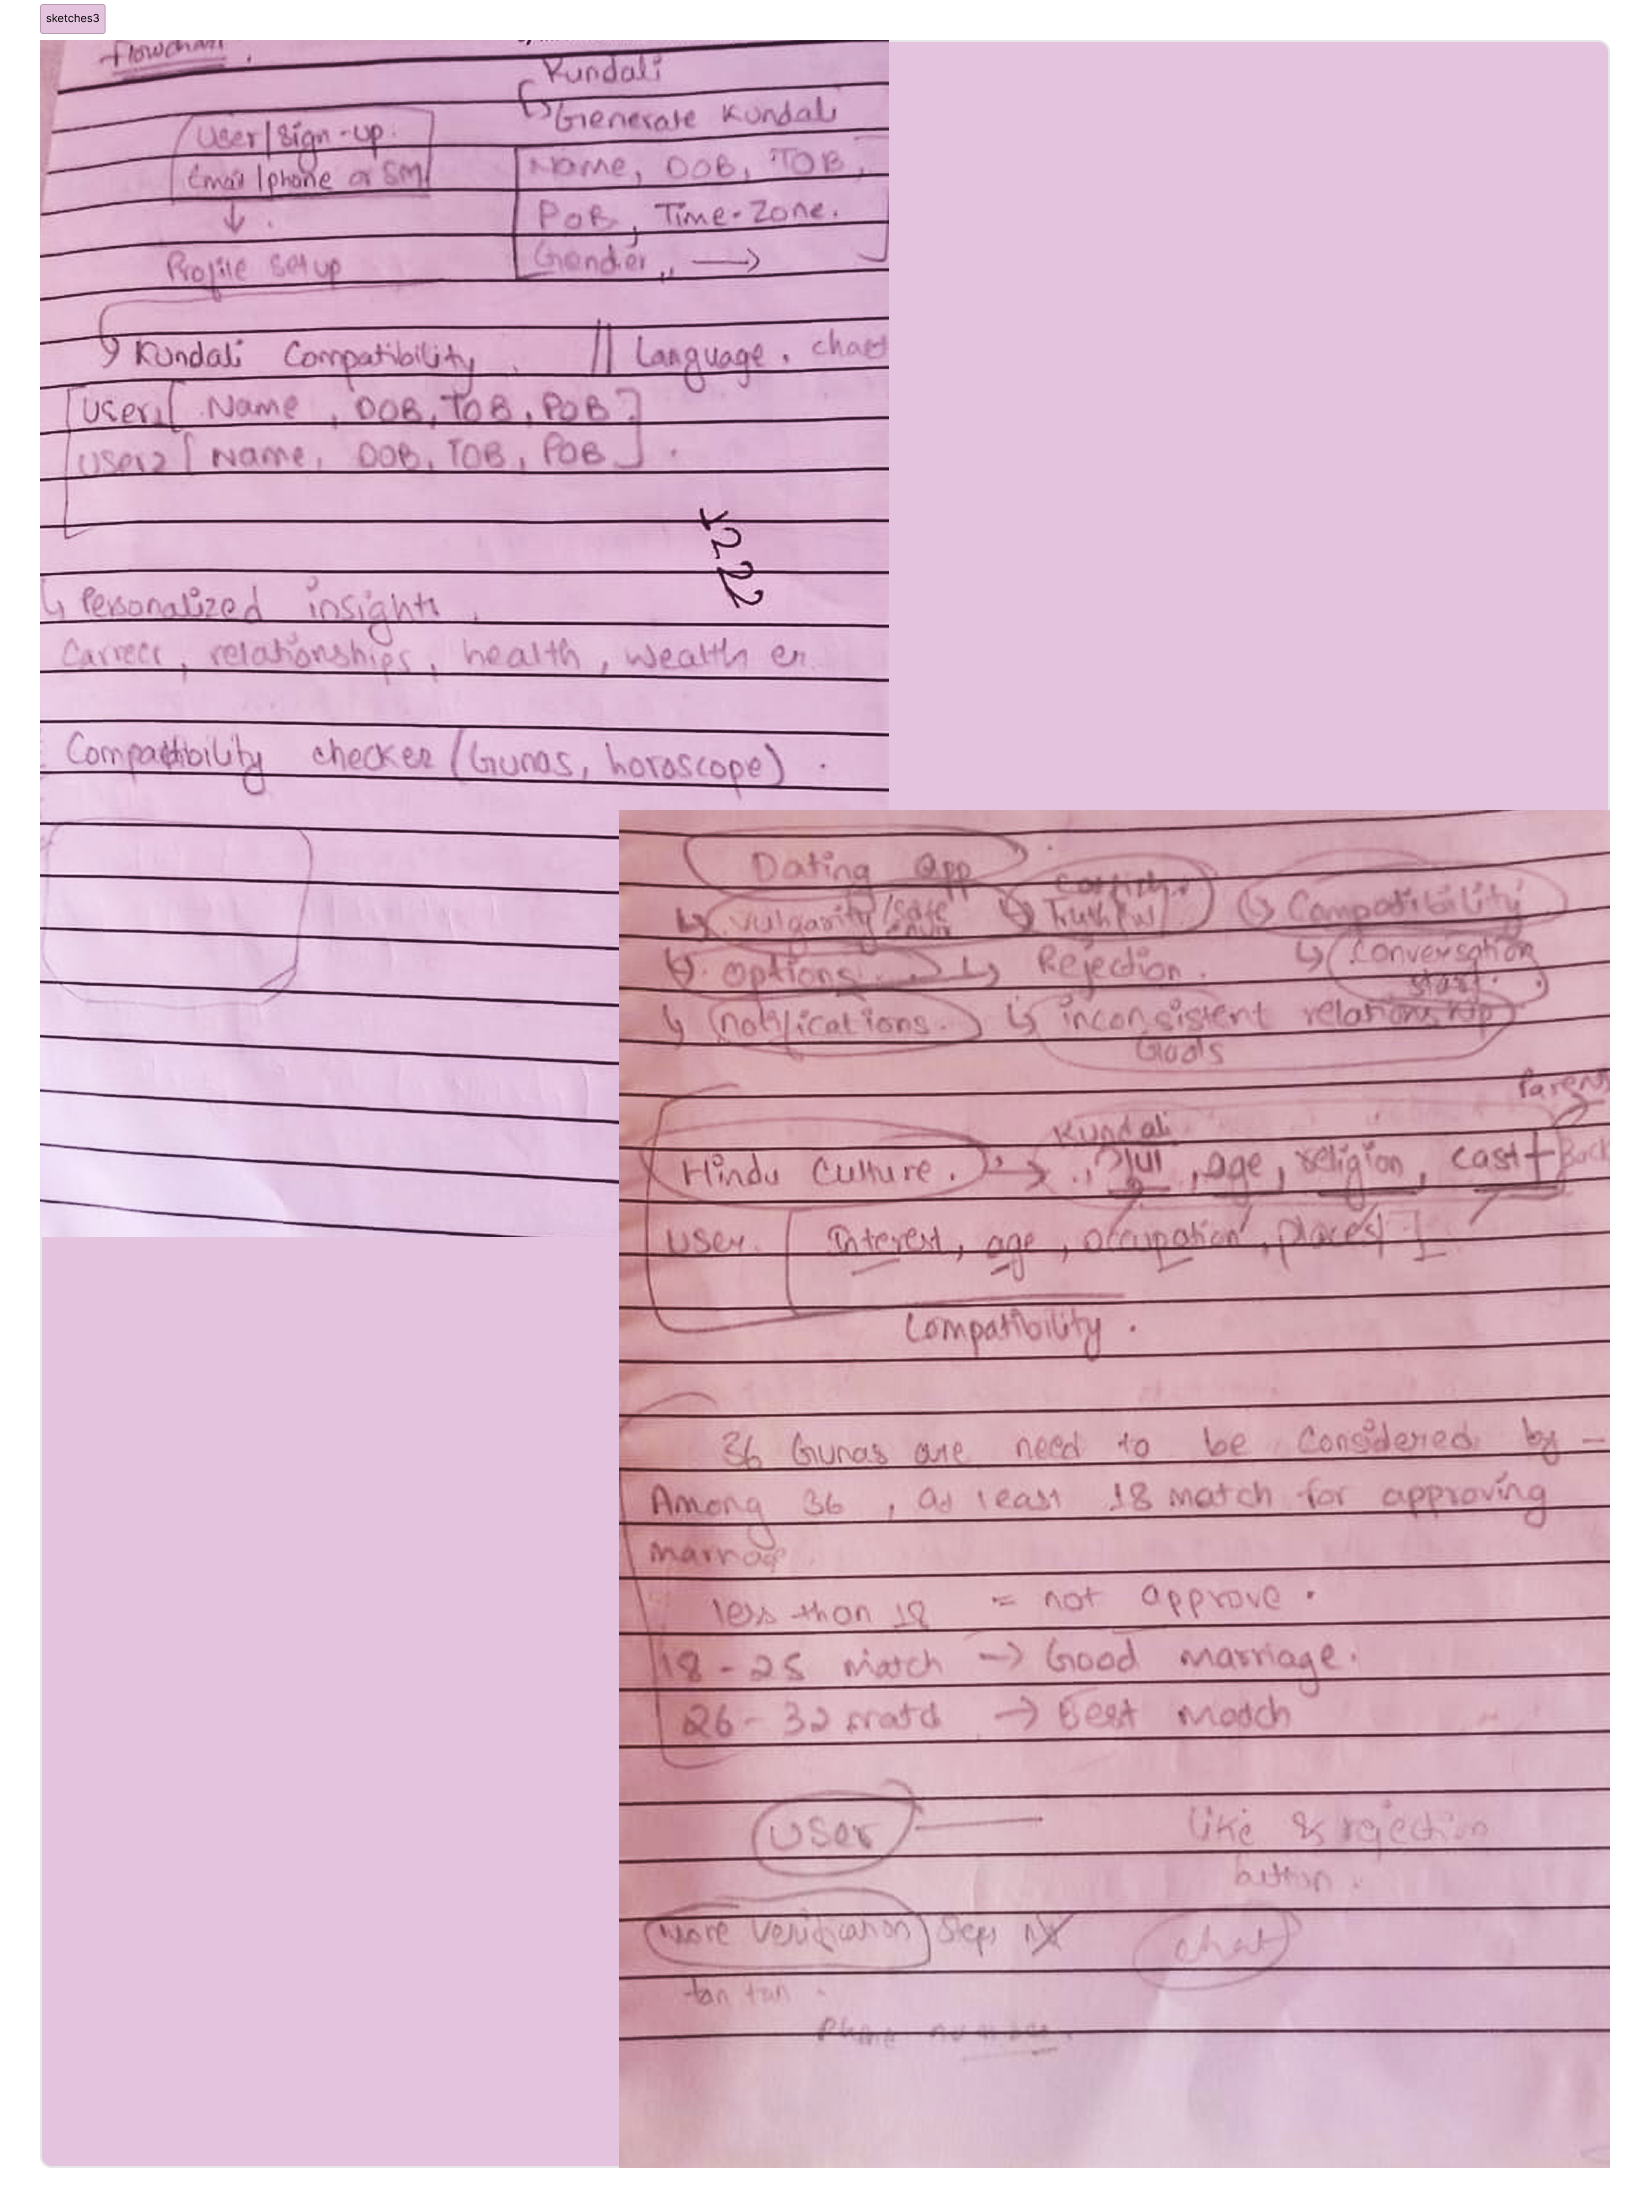 sketches3
flowchart.
User/Sign-up.
Email/phone or SM
↓
Profile setup
Kundali
↳ Generate Kundali
Name, DOB, TOB,
POB, Time-Zone.
Gender, →
↳ Kundali Compatibility. || Language, chart
User1 [ Name, DOB, TOB, POB ]
User2 [ Name, DOB, TOB, POB ].
1222
↳ Personalized insights.
Carreer, relationships, health, wealth
Compatibility checker (Gunas, horoscope).
Dating app
↳ Vulgarity/safe
↳ Truthful
↳ Compatibility
↳ options
↳ Rejection.
↳ Conversation
start.
↳ notifications.
↳ inconsistent relationship
Goals
Parents
Kundali
Hindu Culture. → , गुण, age, religion, cast + Back
User. [ Interest, age, occupation, places ]
Compatibility.
36 Gunas are need to be considered by -
Among 36, at least 18 match for approving
marriage.
less than 18 = not approve.
18 - 25 match → Good marriage.
26 - 32 match → Best match
User — like & rejection
button.
more verification steps
chat
tan tan.
phone number.